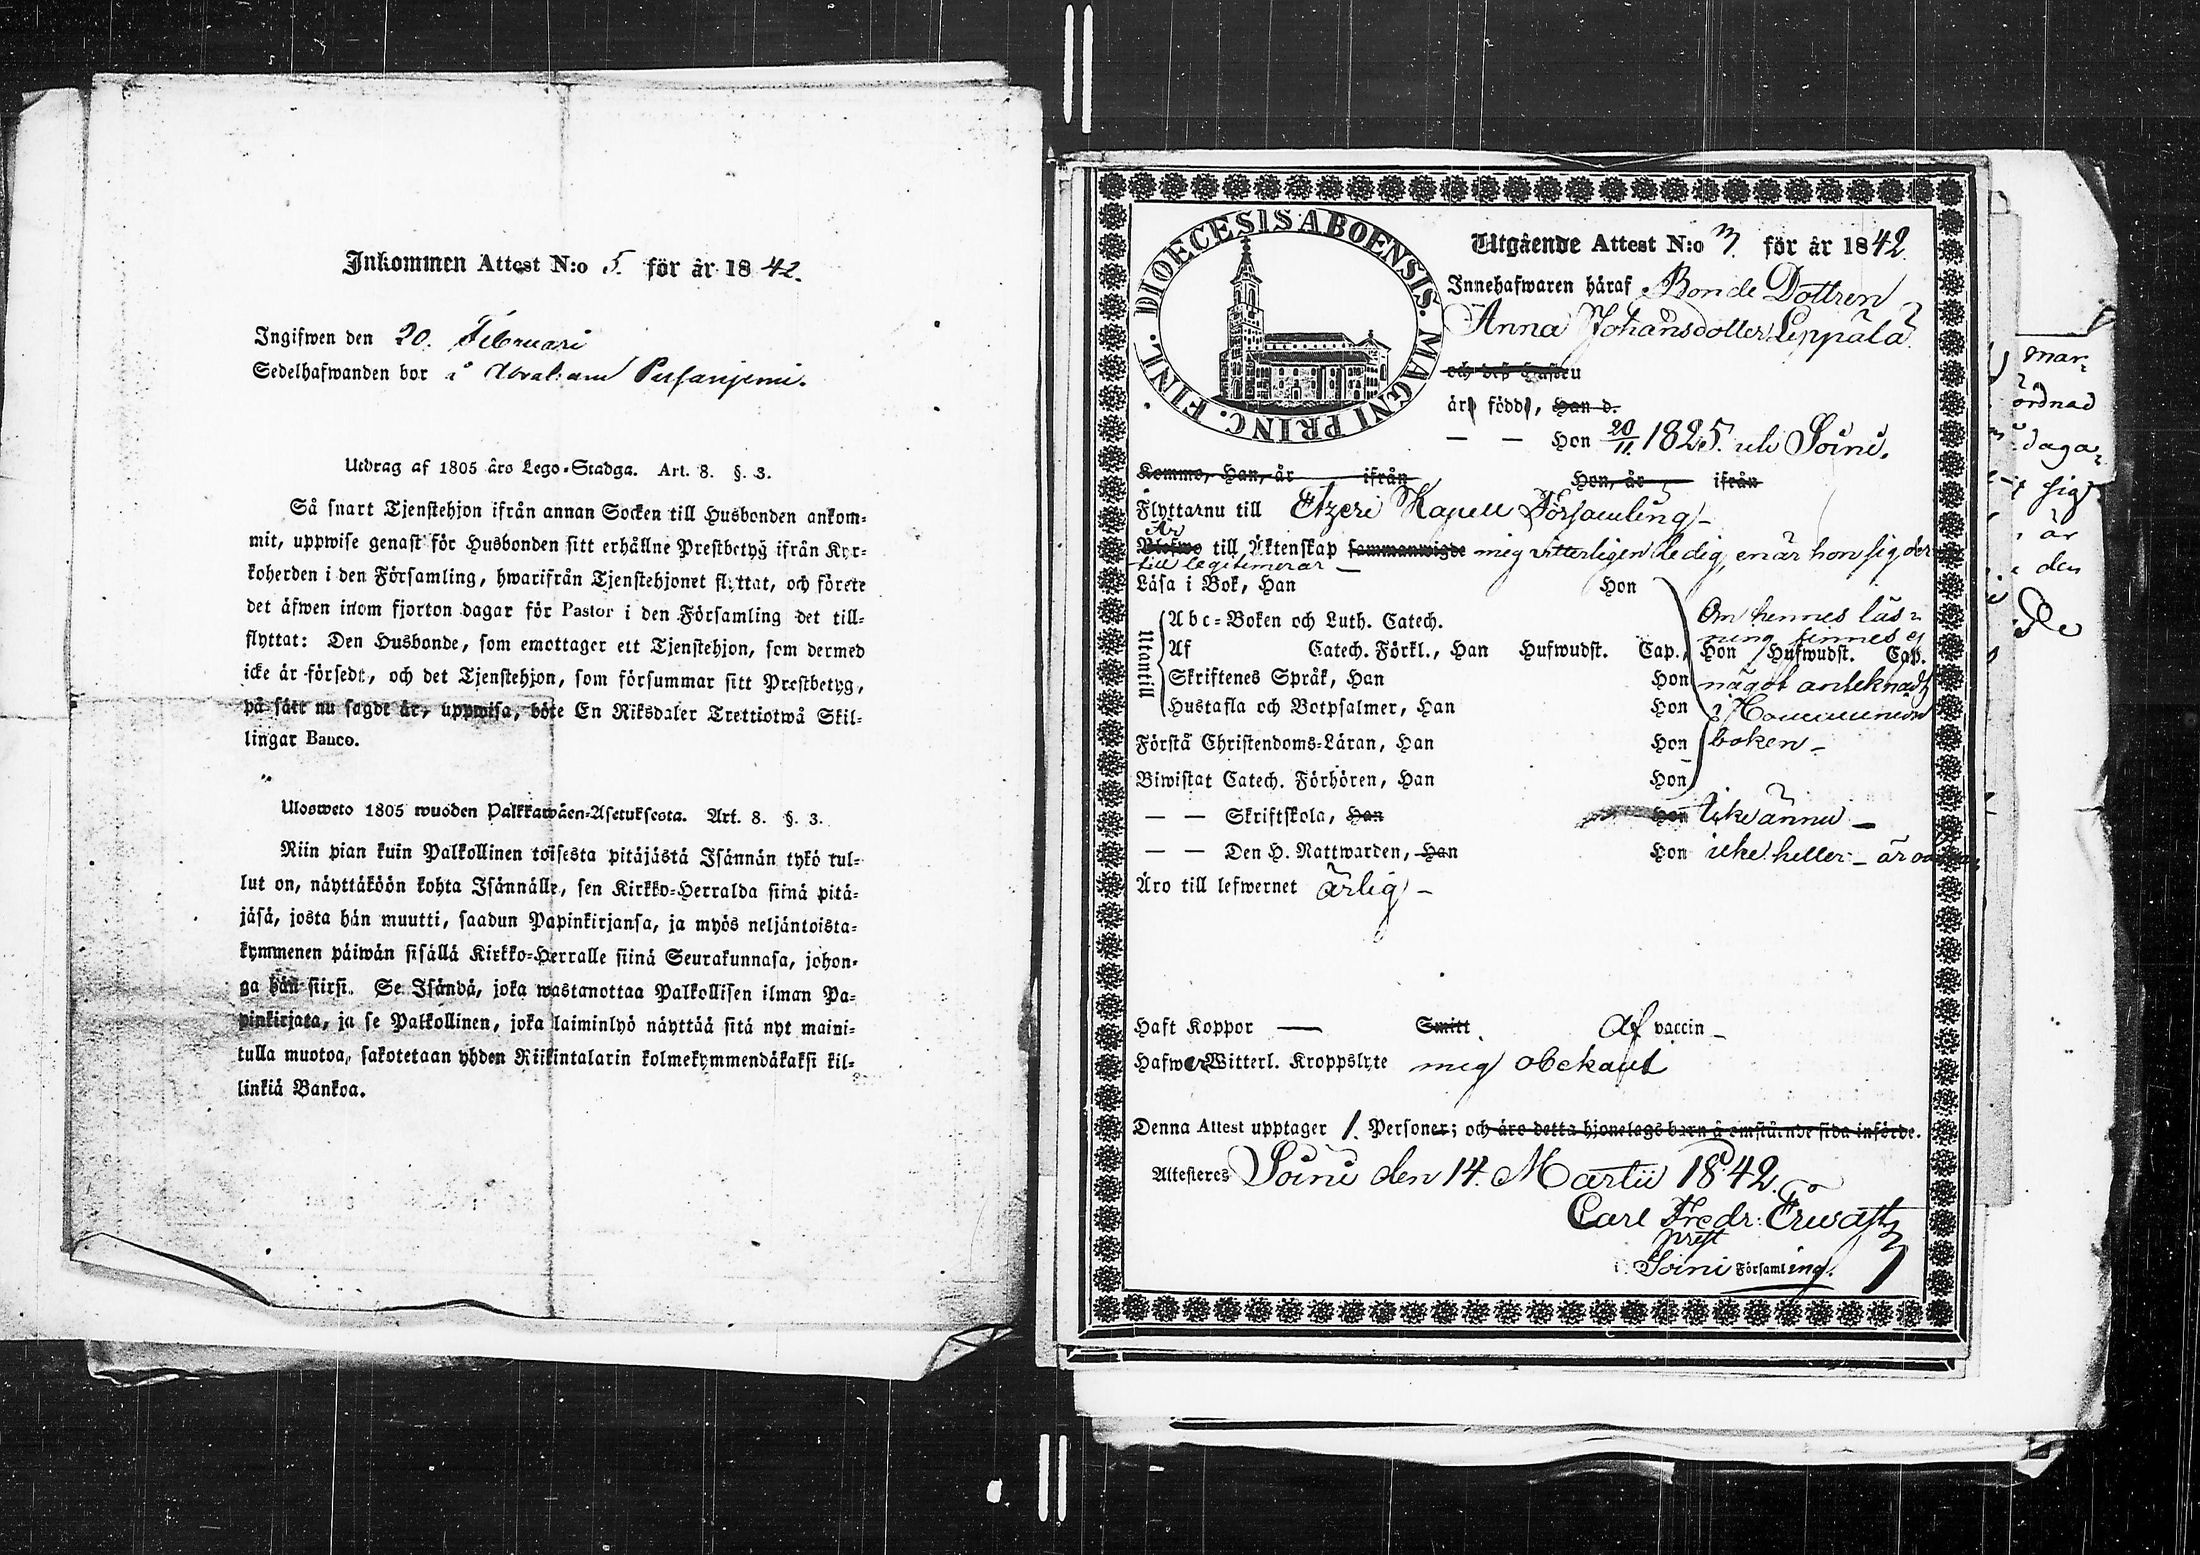 Inkommen Attest N:o 5. för år 1842.
Ingifwen den 20. Februari
Sedelhafwanden bor å Abraham
Utdrag af 1805 års Lego-Stadga. Art. 8. §. 3.
Så snart Tjenstehjon ifrån annan Socken till Husbonden ankom-
mit, uppwise genast för Husbonden sitt erhållne Prestbetyg ifrån Kyr-
koherden i den Församling, hwarifrån Tjenstehjonet flyttat, och förete
det äfwen inom fjorton dagar för Pastor i den Församling det till-
flyttat: Den Husbonde, som emottager ett Tjenstehjon, som dermed
icke är försedt, och det Tjenstehjon, som försummar sitt Prestbetyg,
på sätt nu sagdt är, uppwisa, böte En Riksdaler Trettiotwå Skil-
lingar Banco.
Ulosweto 1805 wuoden Palkkawäen-Asetuksesta. Art. 8. §. 3.
Niin pian kuin Palkollinen toisesta pitäjästä Isännän tykö tul-
lut on, näyttäköön kohta Isännälle, sen Kirkko-Herralda siinä pitä-
jäsä, josta hän muutti, saadun Papinkirjansa, ja myös neljäntoista-
kymmenen päiwän sisällä Kirkko-Herralle siinä Seurakunnasa, johon-
ga hän siirsi. Se Isändä, joka wastanottaa Palkollisen ilman Pa-
pinkirjata, ja se Palkollinen, joka laiminlyö näyttää sitä nyt maini-
tulla muotoa, sakotetaan yhden Riikintalarin kolmekymmendäkaksi kil-
linkiä Bankoa.
DIOECESIS ABOENSIS. MAGNI PRINC. FINL.
Utgående Attest N:o 3. för år 1842.
Innehafwaren häraf Bonde Dottren
Anna Johansdotter Leppälä
och deß Hustru
är född, Han d.
— — Hon 20/11 1825. uti Soini.
Komme, Han, år ifrån Hon, år ifrån
Flyttar nu till Etzeri Kapell Församling –
Är
Blefwo till Äktenskap sammanwigde mig vitterligen ledig, en är hon sig der
till legitimerar –
Läsa i Bok, Han Hon
Om hennes läs-
Abc-Boken och Luth. Catech.
ning finnes ej
Utantill
Af Catech. Förkl., Han Hufwudst. Cap., Hon Hufwudst. Cap.
Skriftenes Språk, Han Hon något anteknadt
Hustafla och Botpsalmer, Han Hon i Communion
Förstå Christendoms-Läran, Han Hon boken –
Biwistat Catech. Förhören, Han Hon
— — Skriftskola, Han Hon icke ännu –
— — Den H. Nattwarden, Han Hon icke heller – är
Äro till lefwernet ärlig –
Haft Koppor — Smitt Af vaccin –
Hafwer Witterl. Kroppslyte mig obekant
Denna Attest upptager 1. Personer; och äro detta hjonelags barn å omstående sida införde.
Attesteres Soini den 14. Martii 1842.
Carl Fredr:
prest
i Soini Församling.
mar-
ordnad
daga-
sig
är
den